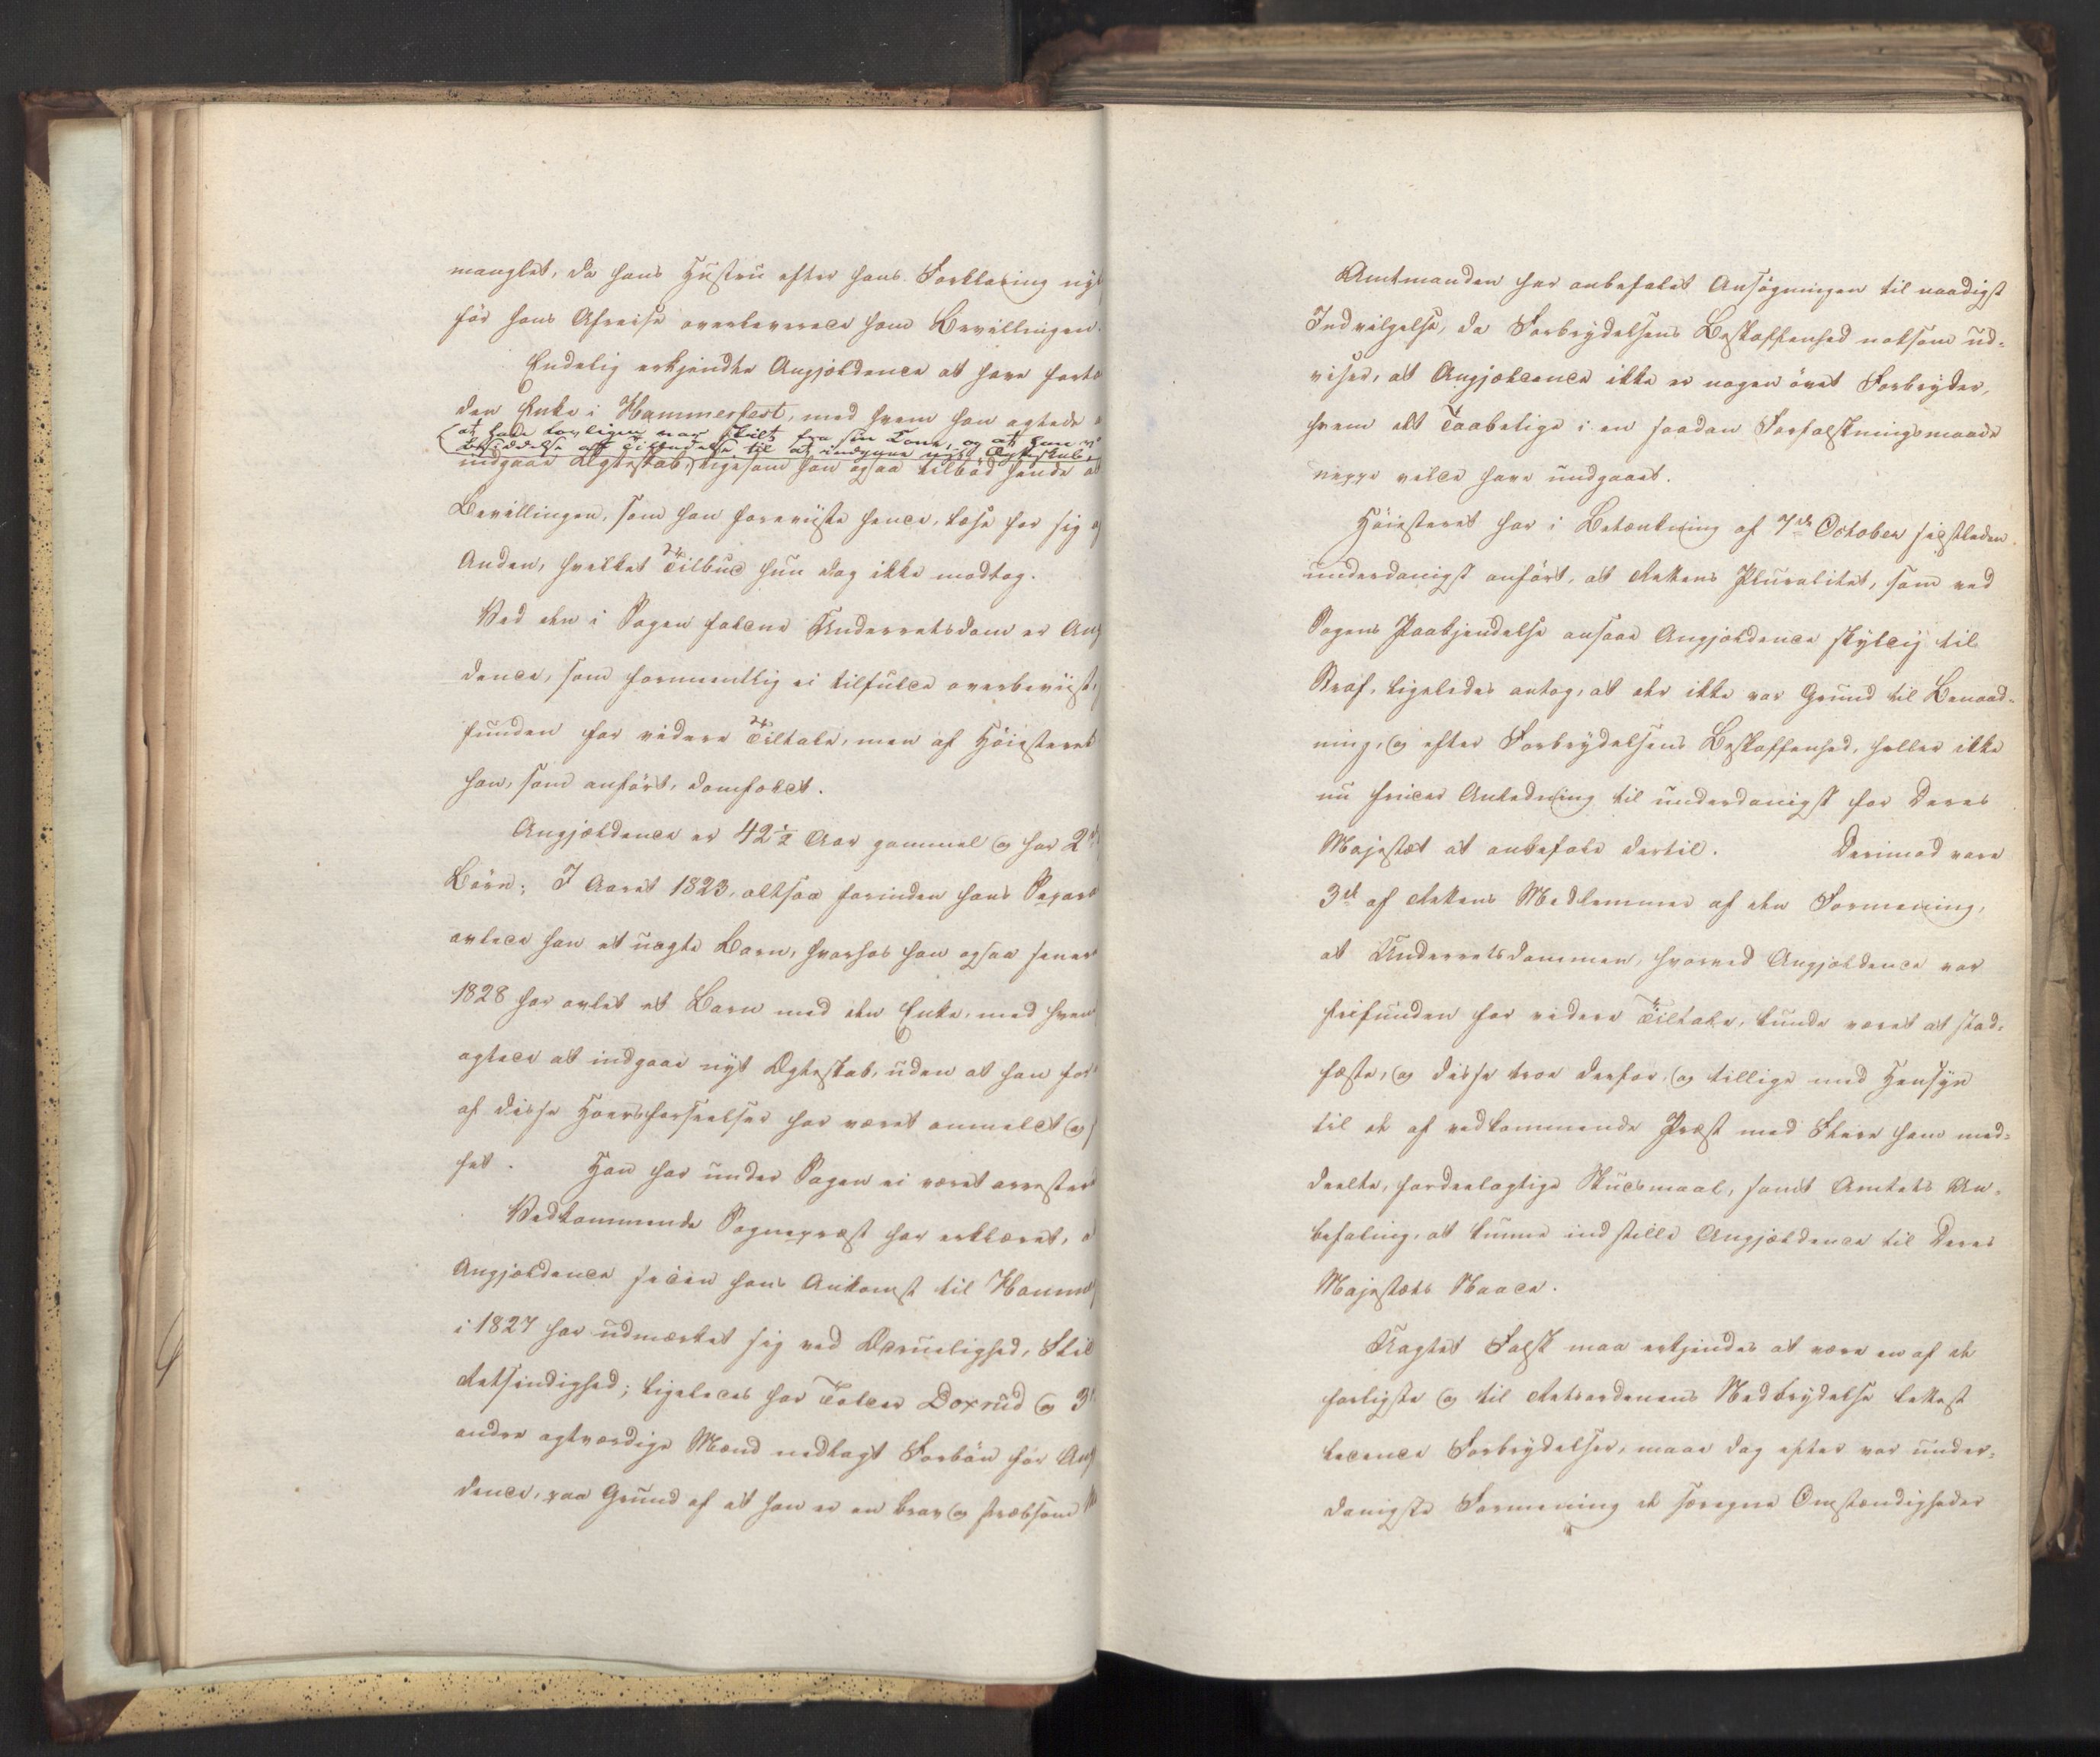 manglet, da hans Hustru efter hans Forklaring nys
før hans Afreise overleverede ham Bevillingen.
Endelig erkjendte Angjældende at have forto
den Enke i Hammerfest, med hvem han agtede a
at hade lovligen var skilt fra sin Kone, og at han v
besiddelse af Tilladelse til at indgaae nyt Ægteskab,
indgaae Ægteskab, ligesom han ogsaa tilbød hende at
Bevillingen, som han foreviiste hende, læse for sig og
Anden, hvilket Tilbud hun dog ikke modtog.
Ved den i Sagen faldne Underretsdom er Ang
dende, som formeentlig ei tilfulde overbeviist,
funden for videre Tiltale, men af Høiesteret
han, som anført, domfældt.
Angjældende er 42½ Aar gammel og har 2de
Børn; I Aaret 1823, altsaa forinden hans Separa
avlede han et uægte Barn, hvorhos han ogsaa senere
1828 har avlet et Barn med den Enke, med hvem
agtede at indgaae nyt Ægteskab, uden at han for
af disse Hoersforseelser har været anmeldt og
fet. Han har under Sagen ei været arresteret
Vedkommende Sognepræst har erklæret, a
Angjældende siden hans Ankomst til Hamme
i 1827 har udmærket sig ved Ædruelighed, Stil
Retsindighed; ligeledes har Tolder Doxrud og 3de
andre agtværdige Mænd nedlagt Forbøn for Ang
dende, paa Grund af at han er en brav og stræbsom M
Amtmanden har anbefalet Ansøgningen til naadigst
Indvilgelse, da Forbrydelsens Beskaffenhed noksom ud-
viser, at Angjældende ikke er nogen øvet Forbryder,
hvem det Taabelige i en saadan Forfalskningsmaade
neppe vilde have undgaaet.
Høiesteret har i Betænkning af 7de October sidstleden
underdanigst anført, at Rettens Pluralitet, som ved
Sagens Paakjendelse ansaae Angjældende skyldig til
Straf, ligeledes antog, at der ikke var Grund til Benaad-
ning, og efter Forbrydelsens Beskaffenhed, heller ikke
nu finder Anledning til underdanigst for Deres
Majestæt at anbefale dertil. Derimod vare
3de af Rettens Medlemmer af den Formening,
at Underretsdommen, hvorved Angjældende var
frifunden for videre Tiltale, burde været at stad-
fæste, og disse troe derfor, og tillige med Hensyn
til de af vedkommende Præst med Flere ham med-
deelte, fordeelagtige Skudsmaal, samt Amtets An-
befaling, at kunne indstille Angjældende til Deres
Majestæts Naade.
Uagtet Falsk maa erkjendes at være en af de
farligste og til Retsordenens Nedbrydelse lettest
ledende Forbrydelser, maae dog efter vor under-
danigste Formening de særegne Omstændigheder